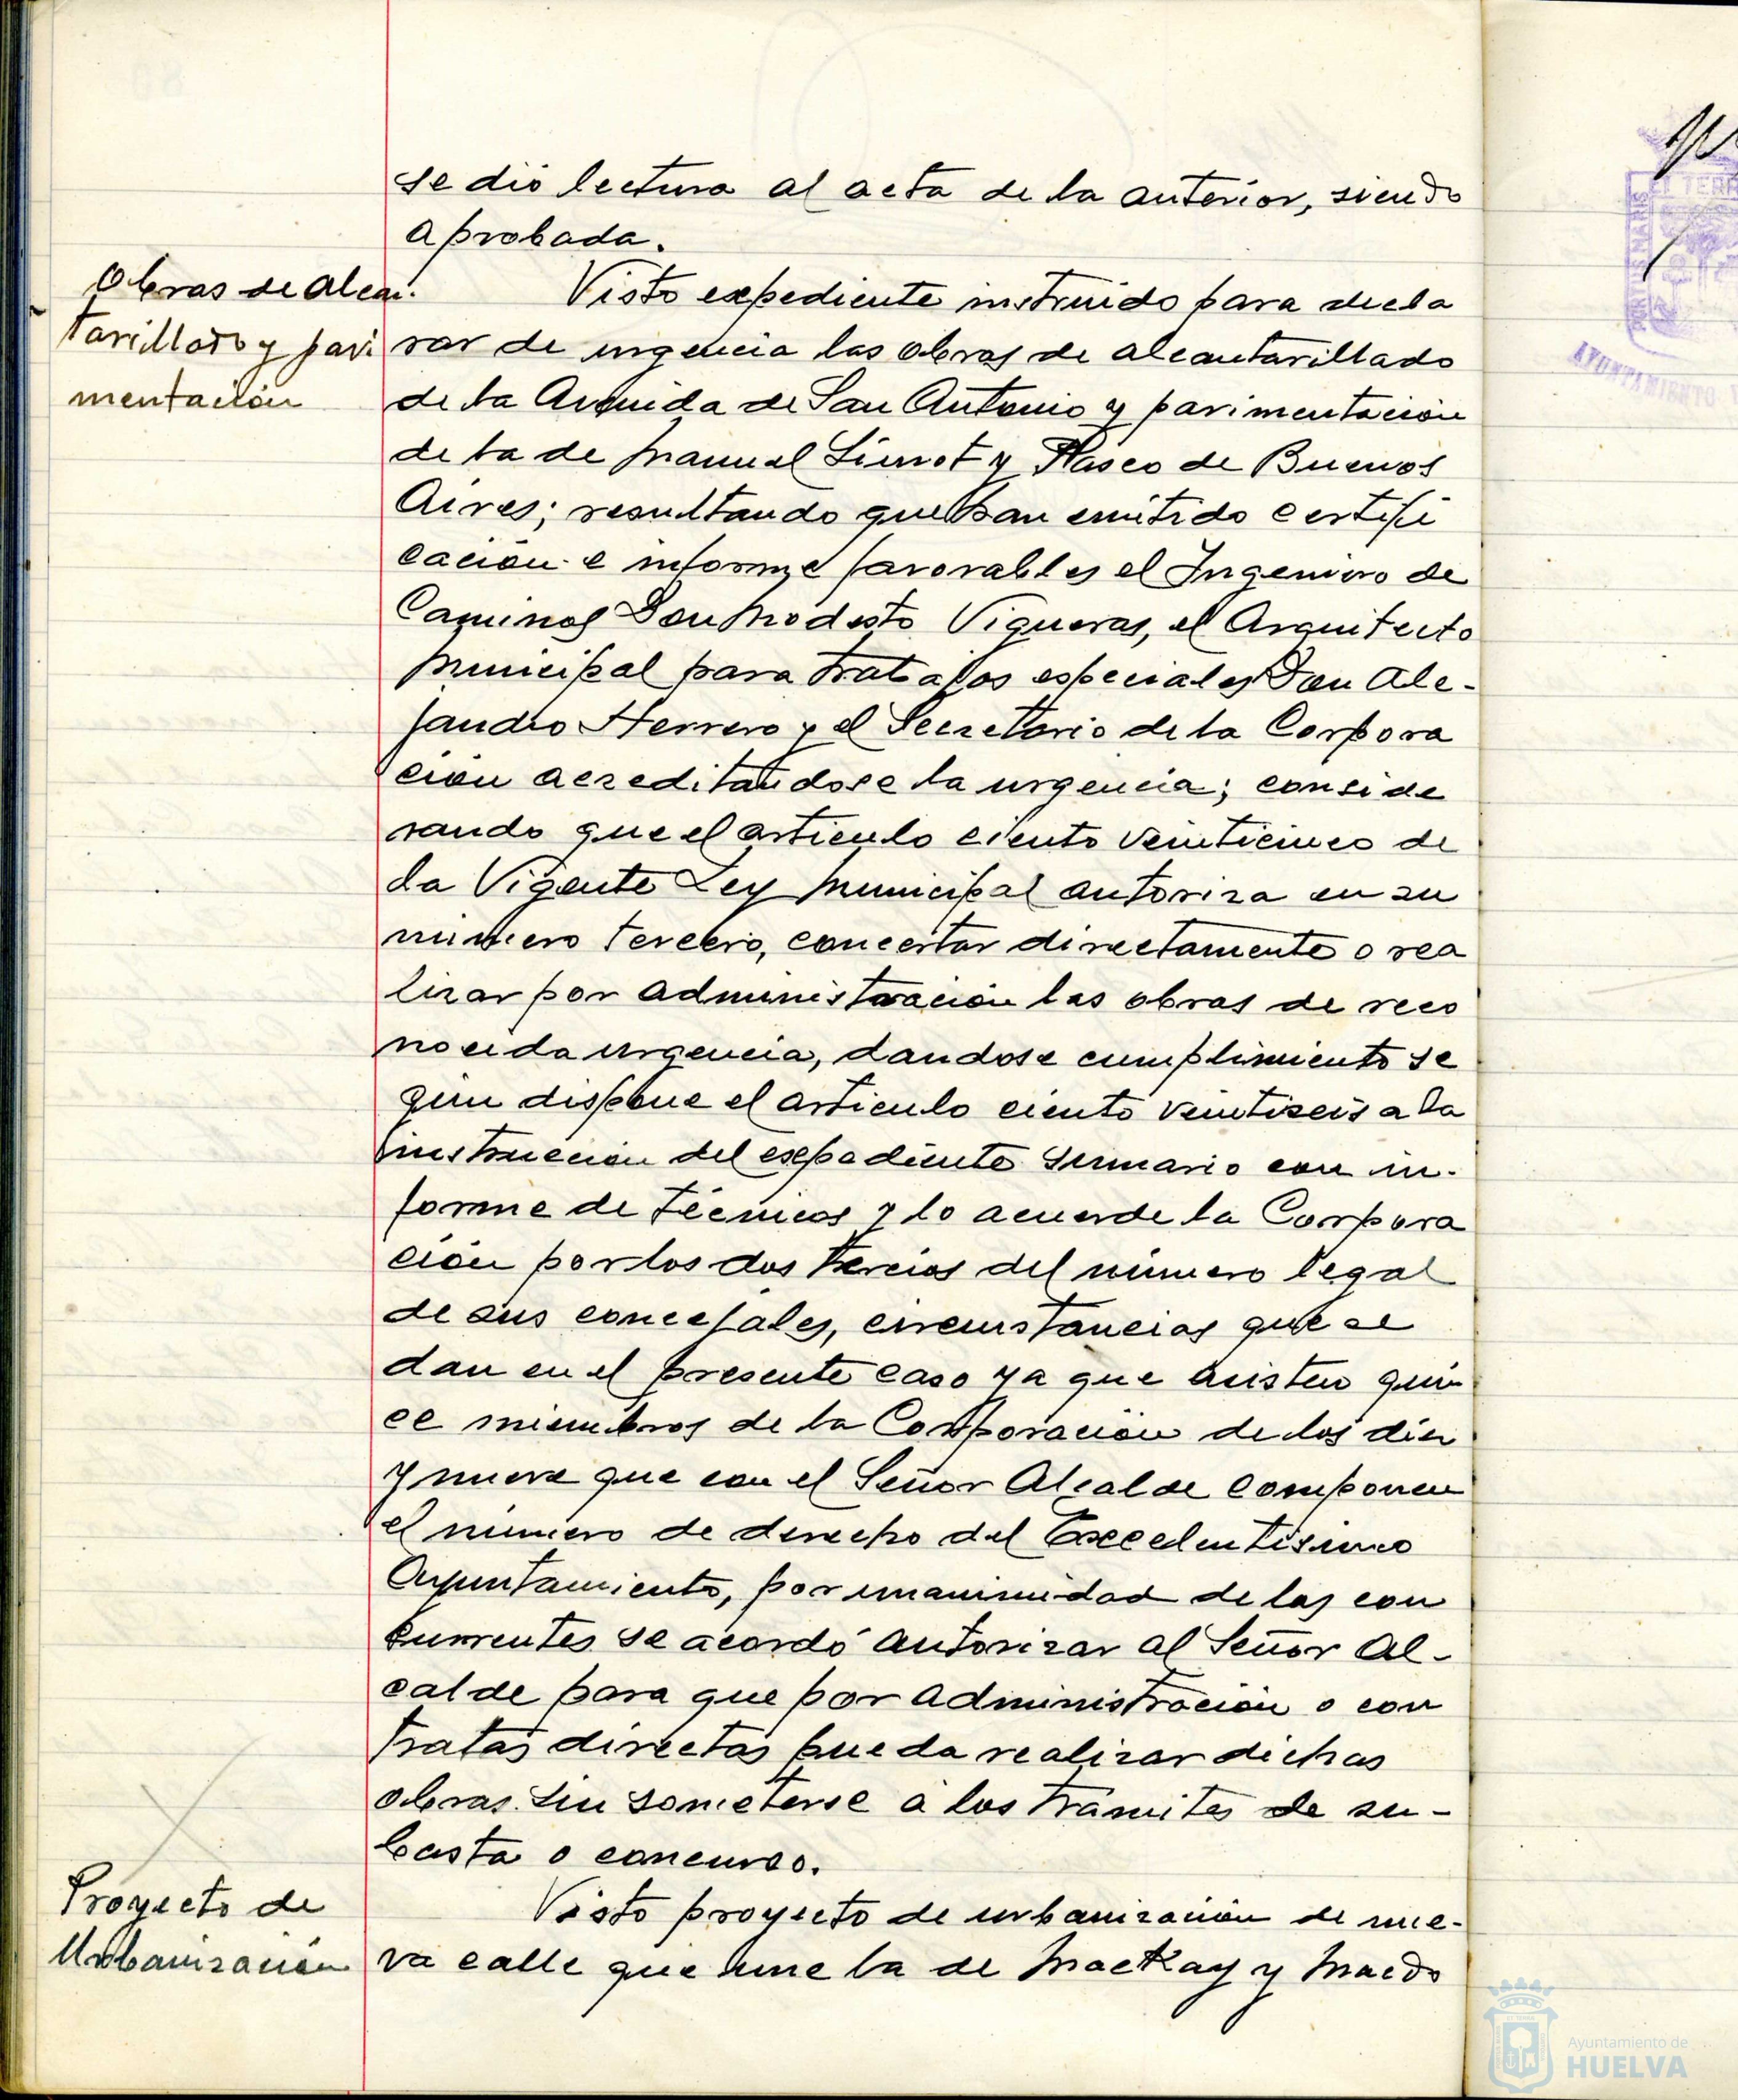 se dió lectura al acta de la anterior, siendo
aprobada.
Obras de alcan-
tarillado y pavi
mentación
Visto expediente instruido para decla
rar de urgencia las obras de alcantarillado
de la Avenida de San Antonio y pavimentación
de la de Manuel Siurot y Paseo de Buenos
Aires; resultando que han emitido certifi
cación e informe favorables el Ingeniero de
Caminos Don Modesto Vigueras, el Arquitecto
Municipal para trabajos especiales Don Ale-
jandro Herrero y el Secretario de la Corpora
ción acreditandose la urgencia; conside
rando que el artículo ciento veinticinco de
la Vigente Ley Municipal autoriza en su
número tercero, concertar directamente o rea
lizar por administración las obras de reco
nocida urgencia, dandose cumplimiento se
gún dispone el artículo ciento veintiseis a la
instrucción del expediente sumario con in-
forme de técnicos y lo acuerde la Corpora
ción por los dos tercios del número legal
de sus concejales, circunstancias que se
dan en el presente caso ya que asisten quin
ce miembros de la Corporación de los diez
y nueve que con el Señor Alcalde componen
el número de derecho del Excelentísimo
Ayuntamiento, por unanimidad de los con
currentes se acordó autorizar al Señor Al-
calde para que por administración o con
tratas directas pueda realizar dichas
obras sin someterse a los trámites de su-
basta o concurso.
Proyecto de
Urbanización
Visto proyecto de urbanización de nue-
va calle que une la de Mackay y Macdo
EL TERR
AYUNTAMIENTO
Ayuntamiento de
HUELVA